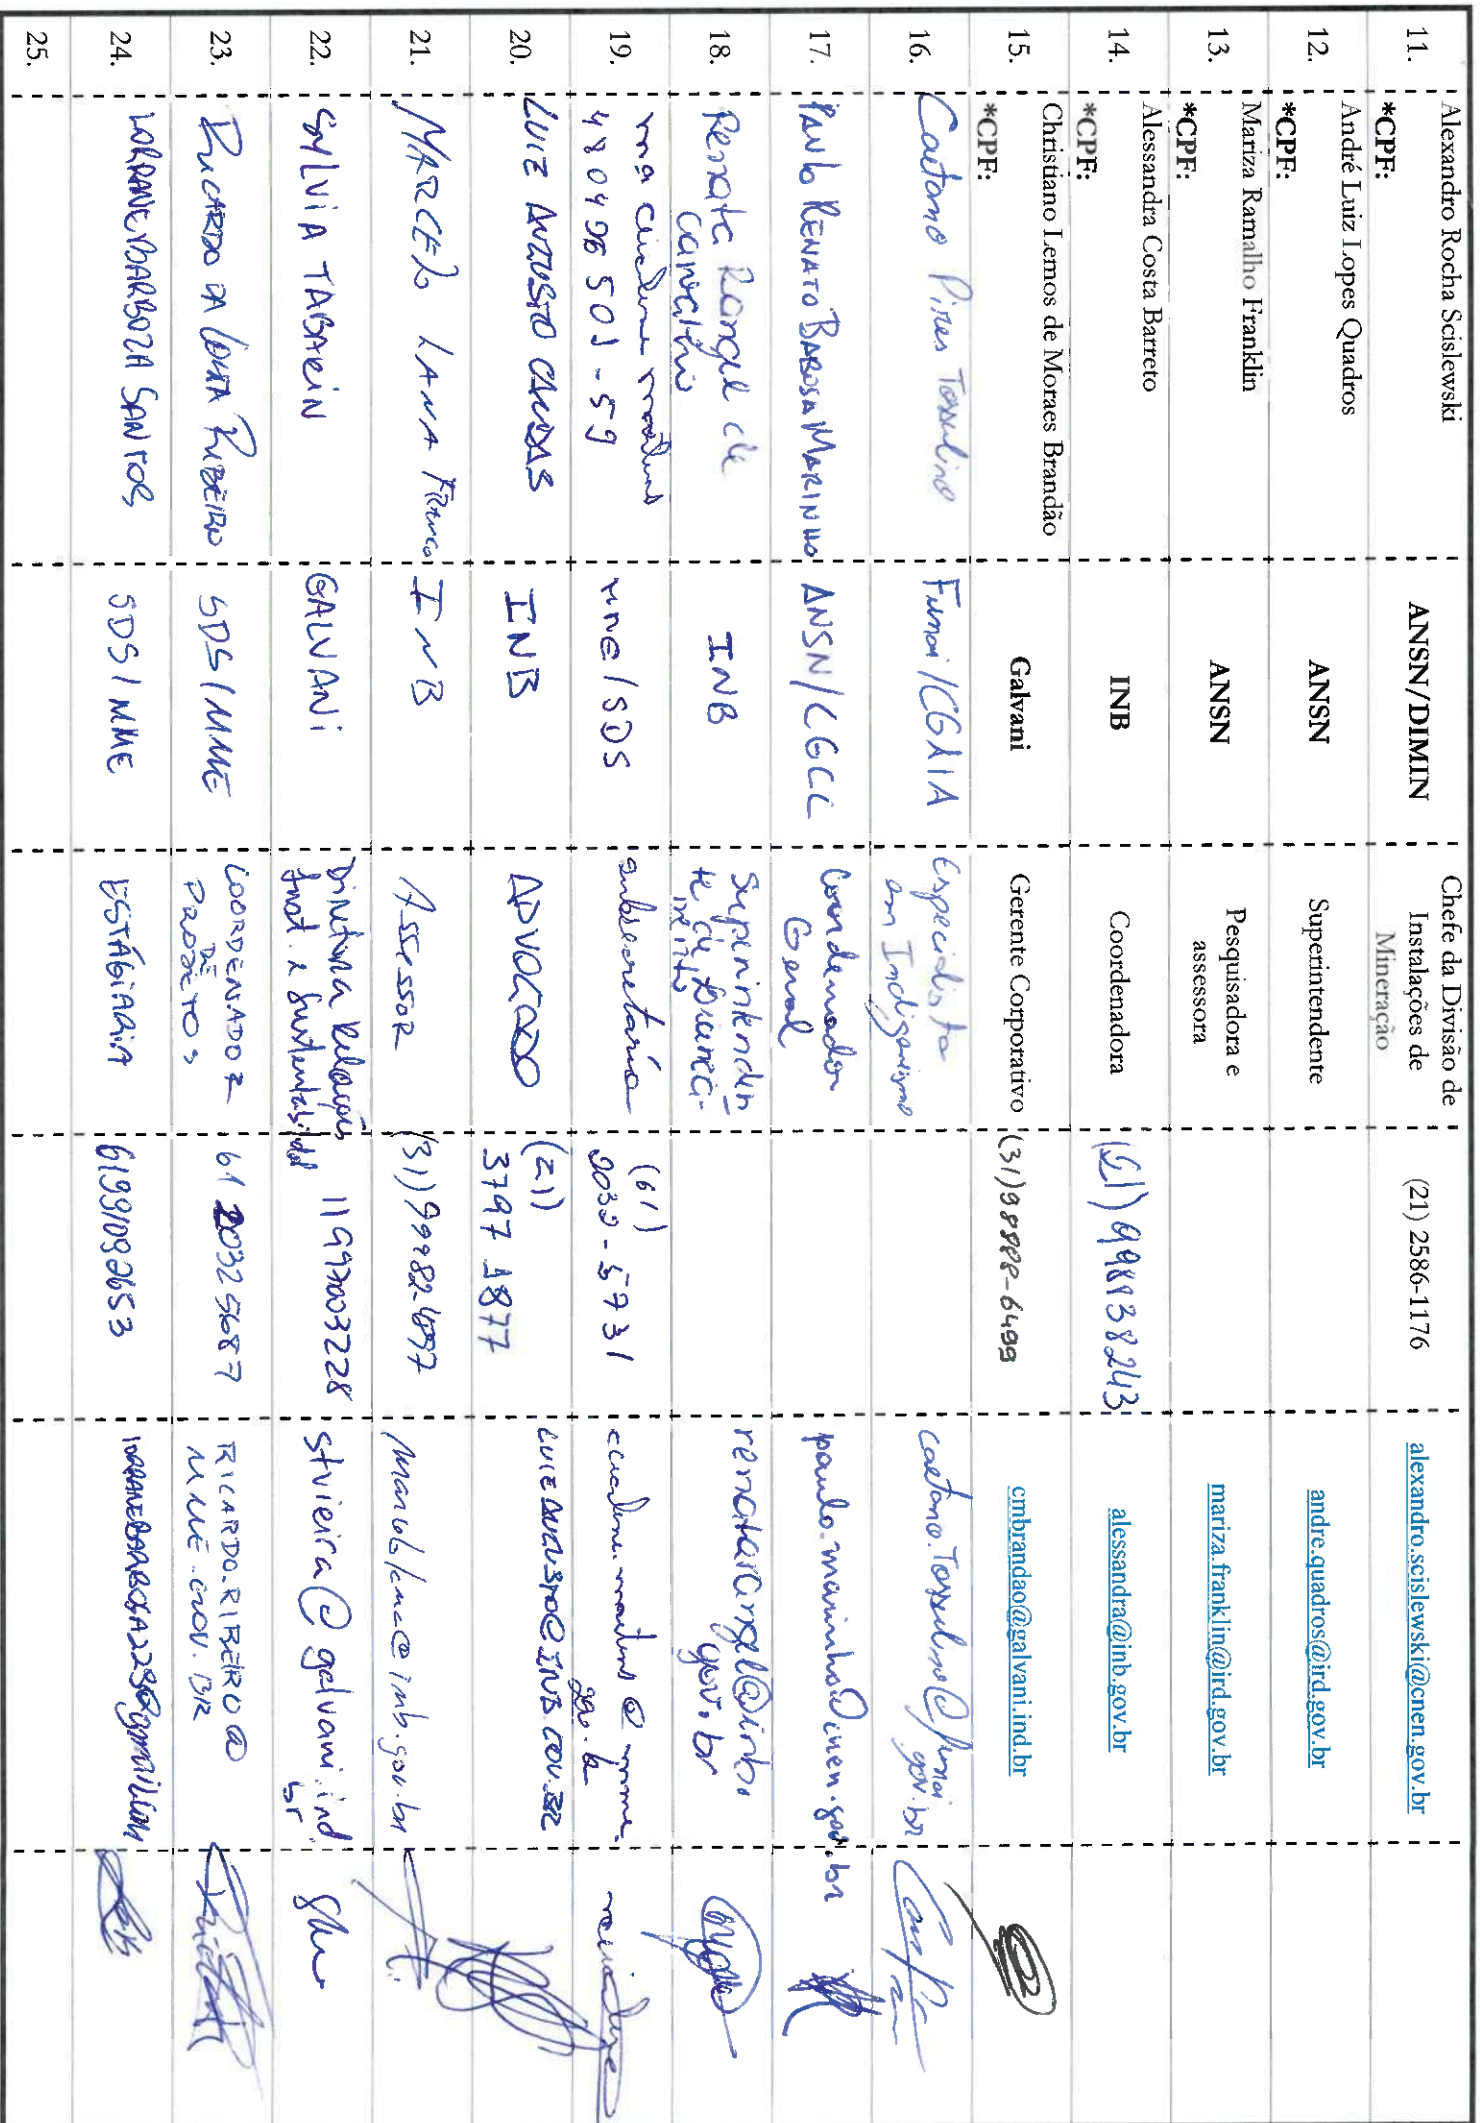 11.
Alexandro Rocha Scislewski
*CPF:
ANSN/DIMIN
Chefe da Divisão de
Instalações de
Mineração
(21) 2586-1176
alexandro.scislewski@cnen.gov.br
12.
André Luiz Lopes Quadros
*CPF:
ANSN
Superintendente
andre.quadros@ird.gov.br
13.
Mariza Ramalho Franklin
*CPF:
ANSN
Pesquisadora e
assessora
mariza.franklin@ird.gov.br
14.
Alessandra Costa Barreto
*CPF:
INB
Coordenadora
(21) 998138243
alessandra@inb.gov.br
15.
Christiano Lemos de Moraes Brandão
*CPF:
Galvani
Gerente Corporativo
(31)98888-6499
cmbrandao@galvani.ind.br
16.
Caetano Pires Tossulino
Funai/CGLIA
Especialista
em Indigenismo
caetano.Tossulino@funai
gov.br
17.
PAULO RENATO BARBOSA MARINHO
ANSN/CGCC
Coordenador
Geral
paulo.marinho@cnen.gov.br
18.
Renata Rangel de
Carvalho
INB
Superintenden
te de Licencia-
mento
renatarangel@inb.
gov.br
19.
480496501-59
MME/SDS
subsecretária
(61)
2032-5731
20.
LUIZ AUGUSTO CALDAS
INB
ADVOGADO
(21)
3797 1877
LUIZAUGUSTO@INB.GOV.BR
21.
MARCELO LANA FRANCO
INB
Assessor
(31)99982-4897
marcelolana@inb.gov.br
22.
SYLVIA TABARIN
GALVANI
Diretora Relações
Inst. e Sustentabilidad
11997003228
stvieira@galvani.ind.
br
23.
RICARDO DA COSTA RIBEIRO
SDS/MME
COORDENADOR
DE
PROJETOS
61 2032 5687
RICARDO.RIBEIRO@
MME.GOV.BR
24.
LORRANE BARBOZA SANTOS
SDS/MME
ESTÁGIARIA
61991092653
25.